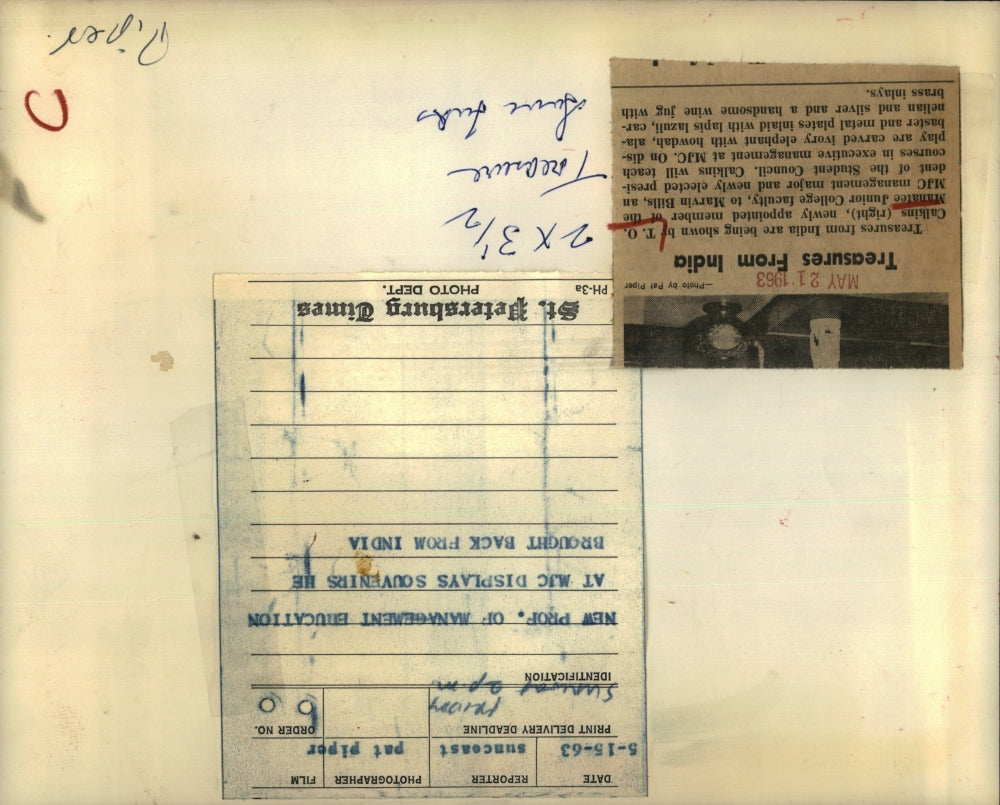 DATE REPORTER PHOTOGRAPHER FILM
5-15-63 suncoast pat piper
PRINT DELIVERY DEADLINE ORDER NO.
FRIDAY
2 pm
IDENTIFICATION
NEW PROF. OF MANAGEMENT EDUCATION
AT MJC DISPLAYS SOUVENIRS HE
BROUGHT BACK FROM INDIA
St. Petersburg Times
PH-3a PHOTO DEPT.
—Photo by Pat Piper
MAY 21 1963
Treasures From India
Treasures from India are being shown by T. O.
Calkins (right), newly appointed member of the
Manatee Junior College faculty, to Marvin Bills, an
MJC management major and newly elected presi-
dent of the Student Council. Calkins will teach
courses in executive management at MJC. On dis-
play are carved ivory elephant with howdah, ala-
baster and metal plates inlaid with lapis lazuli, car-
nelian and silver and a handsome wine jug with
brass inlays.
2 X 3 1/2
Treasure
Piper